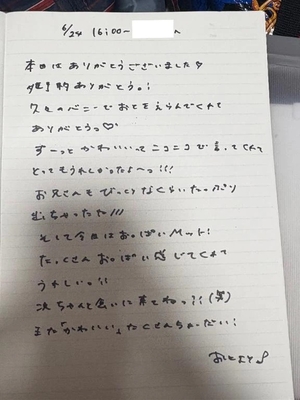 6/24 16:00〜 へ
本日はありがとうございました
予約ありがとう。!
久々のバニーでおとをえらんでくれて
ありがとうっ♡
ずーっとかわいいってニコニコで言ってくれて
とってもうれしかったよ〜っ!!!
お兄さんもびっくりなくらいたっぷり
むしちゃったね///
そして今日はおっぱいMット!
たっくさんおっぱい感じてくれて
うれしいっ!!
次ちゃんと会いに来てねっ!!(笑)
また「かわいい」たくさんちょーだい!
おとより